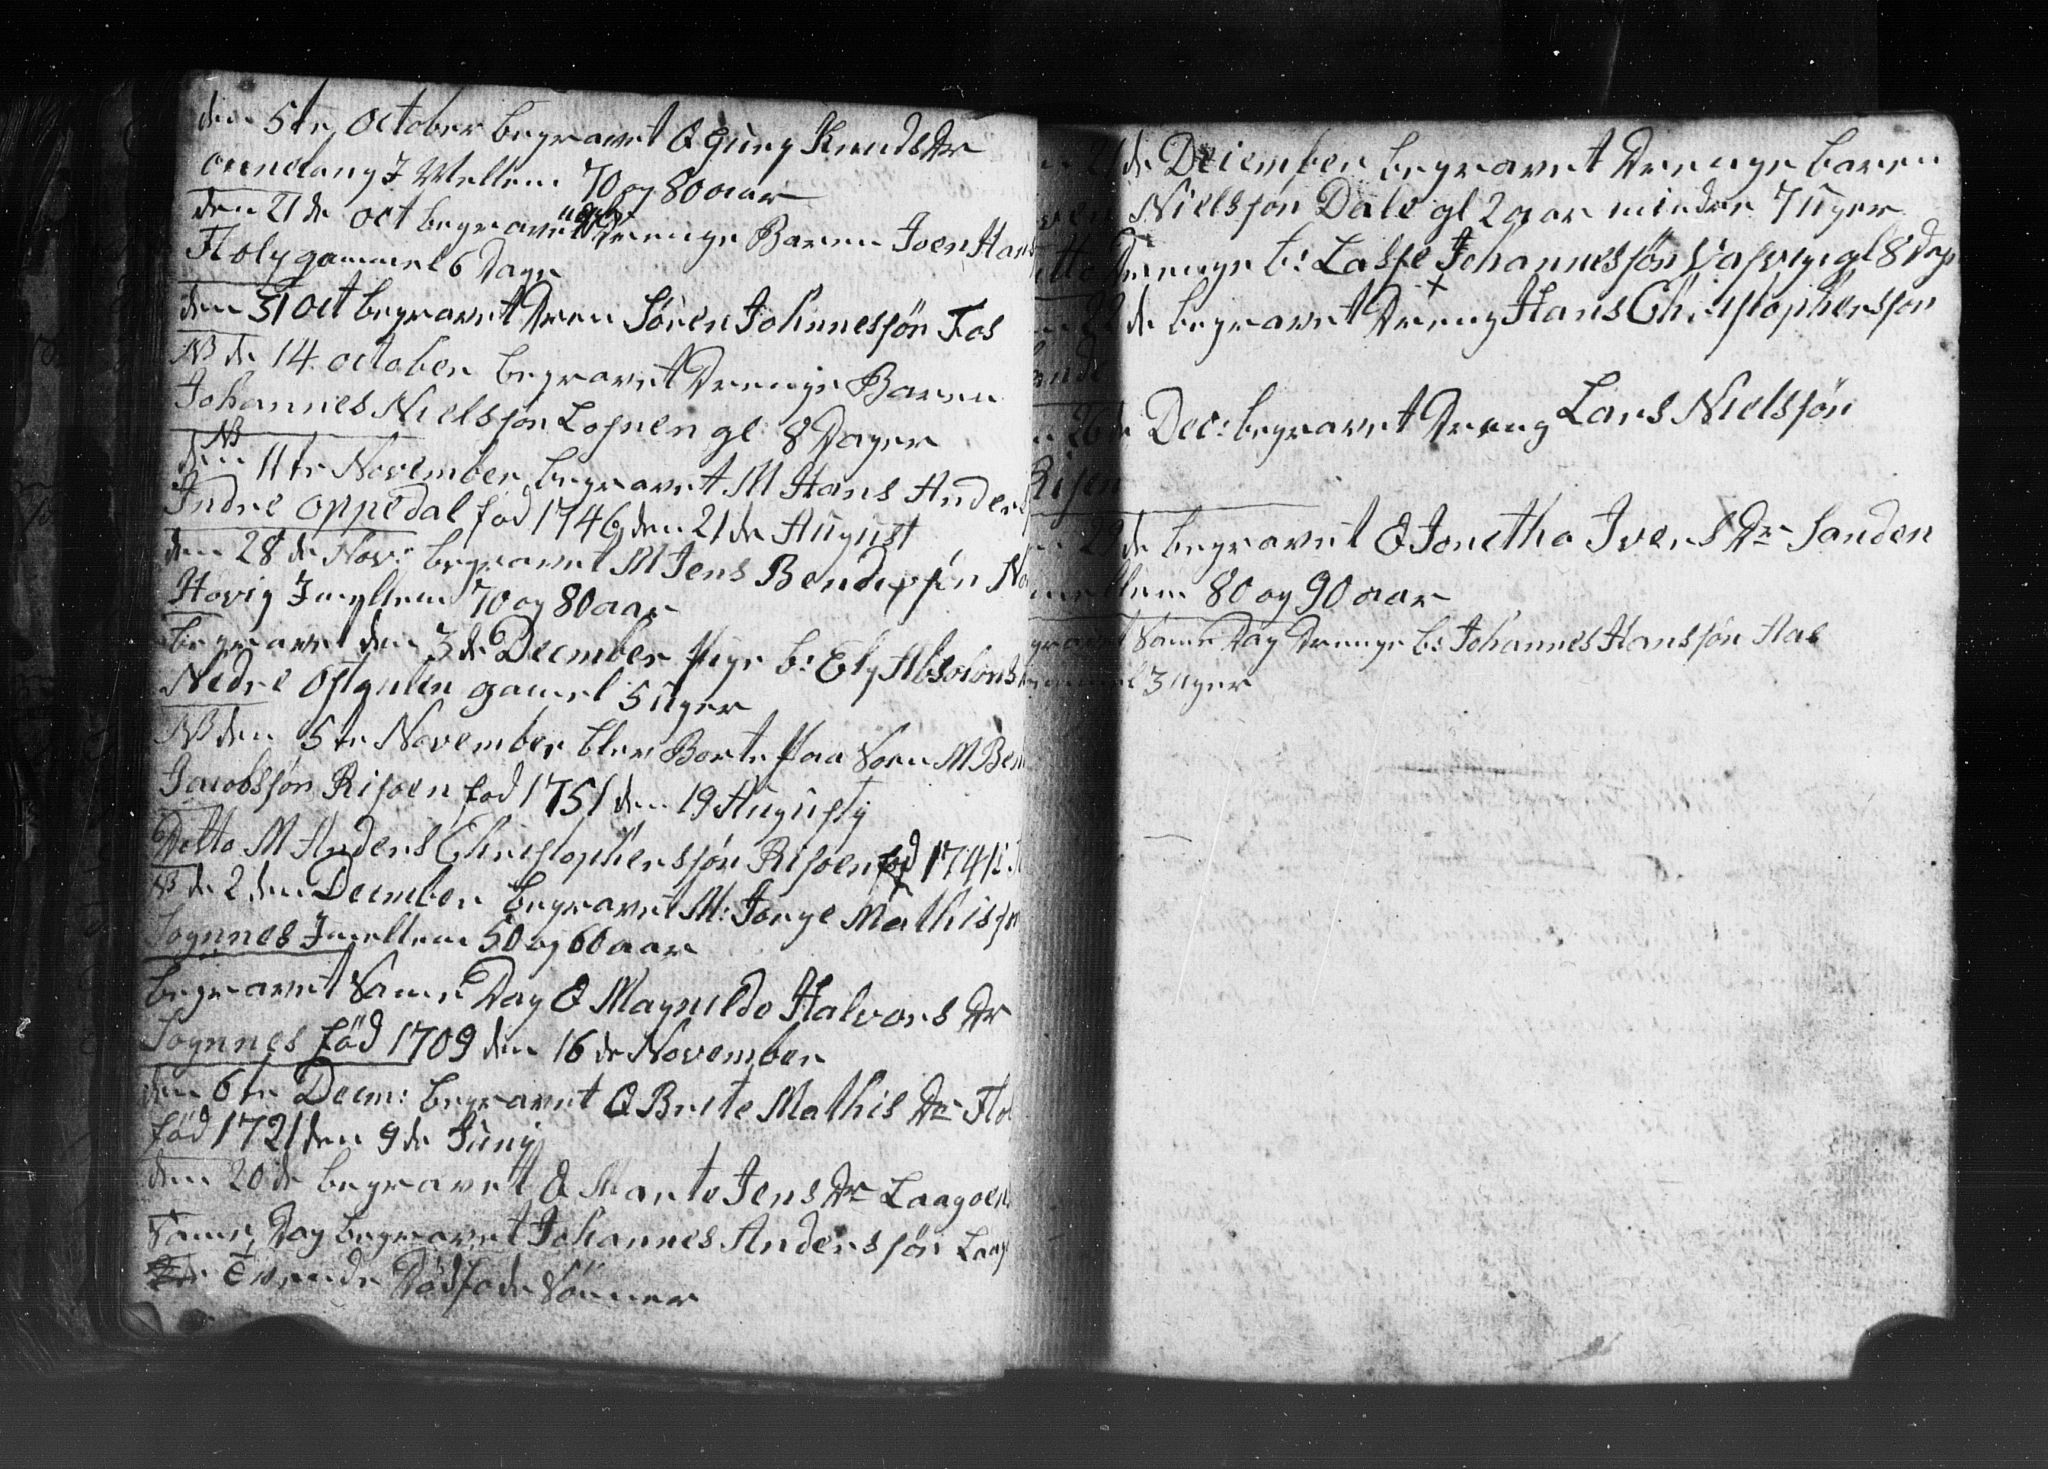 den 5te october begravet Q Gury Knuds Dr
Annelang I Mellem 70 og 80 aar
den 21 de oct begravet Drenge Baren Iver Hans
Floly gammel 6 Dage
den 31 oct begravet Dren Sören Johannessjön Fos
NB de 14 october begravet Drenge Baren
Johannes Nielssjön Losnen gl 8 Dager
NB
den 11te November begravet M Hans Anders
Indre oppedal fød 1746 den 21 de August
den 28 de Nov: begravet M Jens Bendixsjön
Høvig Imellem 70 og 80 aar
begravet den 3 de December Pige b: Ely Absolons
Nedre Ostgulen gamel 5 üger
NB den 5te November blev Borte Paa Søen M Ben
Jacobssjön Risøen fød 1751 den 19 Augusty
Ditto M Anders Christopherssjön Risøen fød 1741
NB de 2 den December begravet M: Jørge Mathissjø
Sognnes Imellem 50 og 60 aar
begravet Same Dag Q Magnilde Halvors Dr
Sognnes född 1709 den 16 de November
den 6te Decm: begravet Q Brite Mathis Dr Flol
född 1721 den 9 de Junij
den 20 de begravet Q Marte Jens Dr Laagøen
Same Dag begravet Johannes Anderssjön Laag
Tvende Dödföde Sönner
21 de December begravet Drenge baren
Nielssjön Dale gl 2 aar minder 7 üger
Ditto Drenge b: Lasse Johannessjön Vasvige gl 8 Dage
22 de begravet Dreng Hans Christopherssjön
26 de Dec: begravet Dreng Lars Nielssjön
Risøen
29 de begravet Q Jonetha Ivers Dr Sanden
mellem 80 og 90 aar
begravet Same Dag Drenge b: Johannes Hanssjön Aae
gammel 3 üger